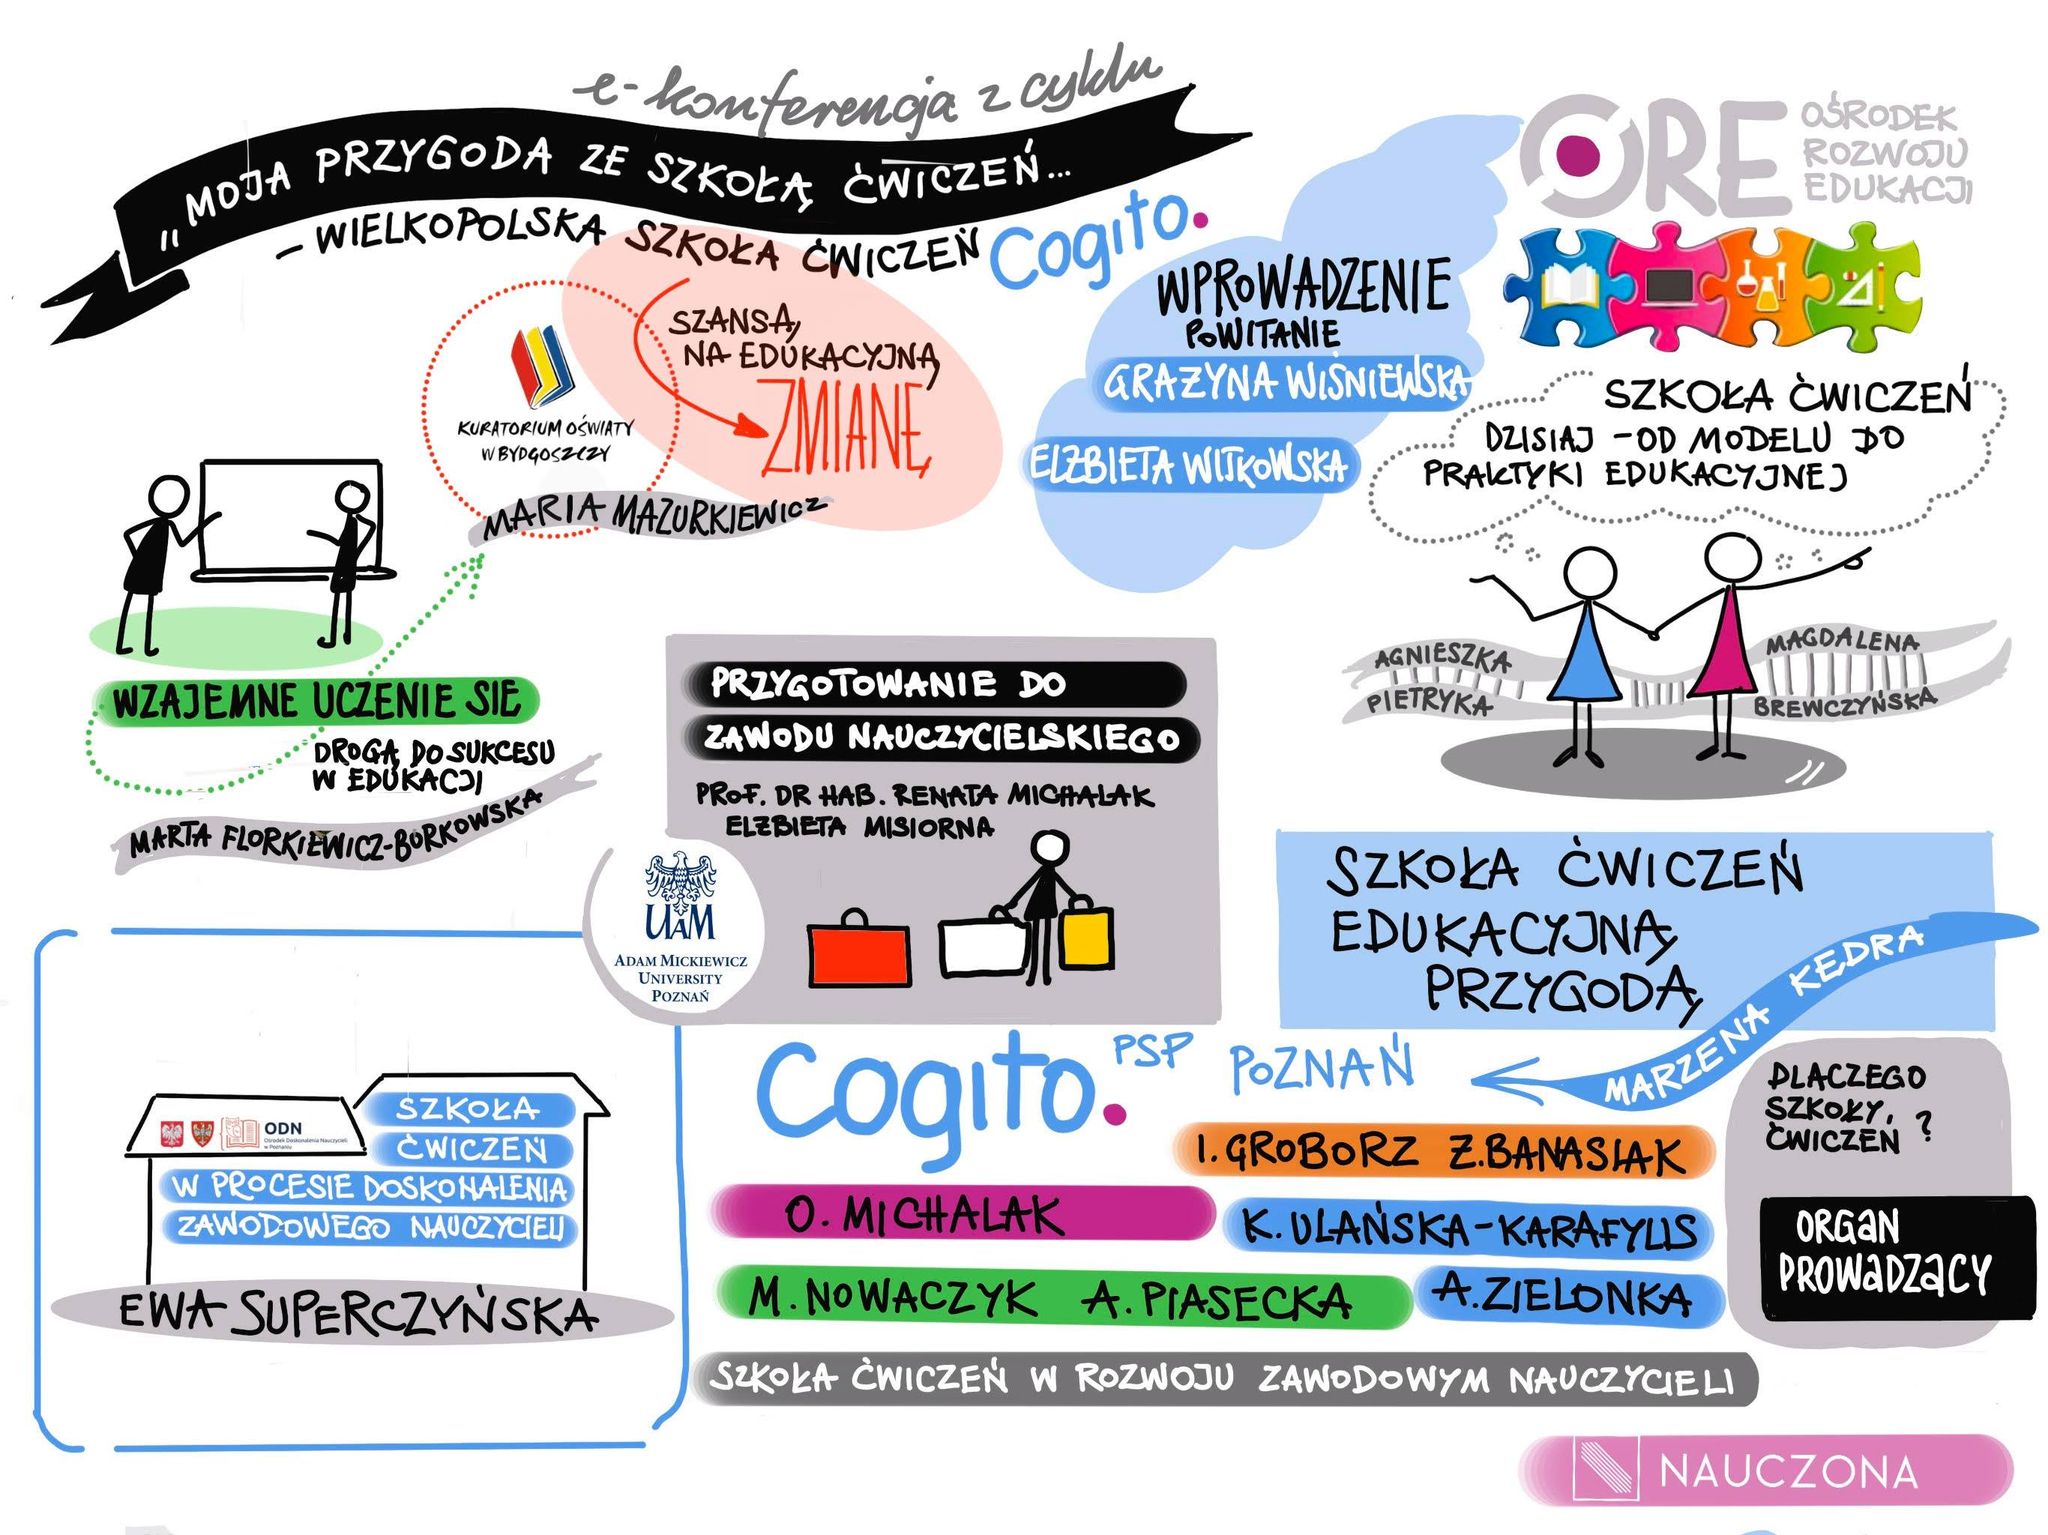 e-konferencja z cyklu
„MOJA PRZYGODA ZE SZKOŁĄ ĆWICZEŃ...
- WIELKOPOLSKA SZKOŁA ĆWICZEŃ Cogito.
SZANSĄ
NA EDUKACYJNĄ
ZMIANĘ
KURATORIUM OŚWIATY
W BYDGOSZCZY
MARIA MAZURKIEWICZ
WPROWADZENIE
POWITANIE
GRAŻYNA WIŚNIEWSKA
ELŻBIETA WITKOWSKA
ORE
OŚRODEK
ROZWOJU
EDUKACJI
SZKOŁA ĆWICZEŃ
DZISIAJ - OD MODELU DO
PRAKTYKI EDUKACYJNEJ
AGNIESZKA
PIETRYKA
MAGDALENA
BREWCZYŃSKA
WZAJEMNE UCZENIE SIĘ
DROGĄ DO SUKCESU
W EDUKACJI
MARTA FLORKIEWICZ-BORKOWSKA
PRZYGOTOWANIE DO
ZAWODU NAUCZYCIELSKIEGO
PROF. DR HAB. RENATA MICHALAK
ELŻBIETA MISIORNA
UAM
ADAM MICKIEWICZ
UNIVERSITY
POZNAŃ
SZKOŁA ĆWICZEŃ
EDUKACYJNĄ
PRZYGODĄ
MARZENA KĘDRA
Cogito. PSP POZNAŃ
I. GROBORZ Z. BANASIAK
O. MICHALAK
K. ULAŃSKA-KARAFYLIS
M. NOWACZYK A. PIASECKA
A. ZIELONKA
DLACZEGO
SZKOŁY
ĆWICZEŃ ?
ORGAN
PROWADZĄCY
ODN
Ośrodek Doskonalenia Nauczycieli
w Poznaniu
SZKOŁA
ĆWICZEŃ
W PROCESIE DOSKONALENIA
ZAWODOWEGO NAUCZYCIELI
EWA SUPERCZYŃSKA
SZKOŁA ĆWICZEŃ W ROZWOJU ZAWODOWYM NAUCZYCIELI
NAUCZONA